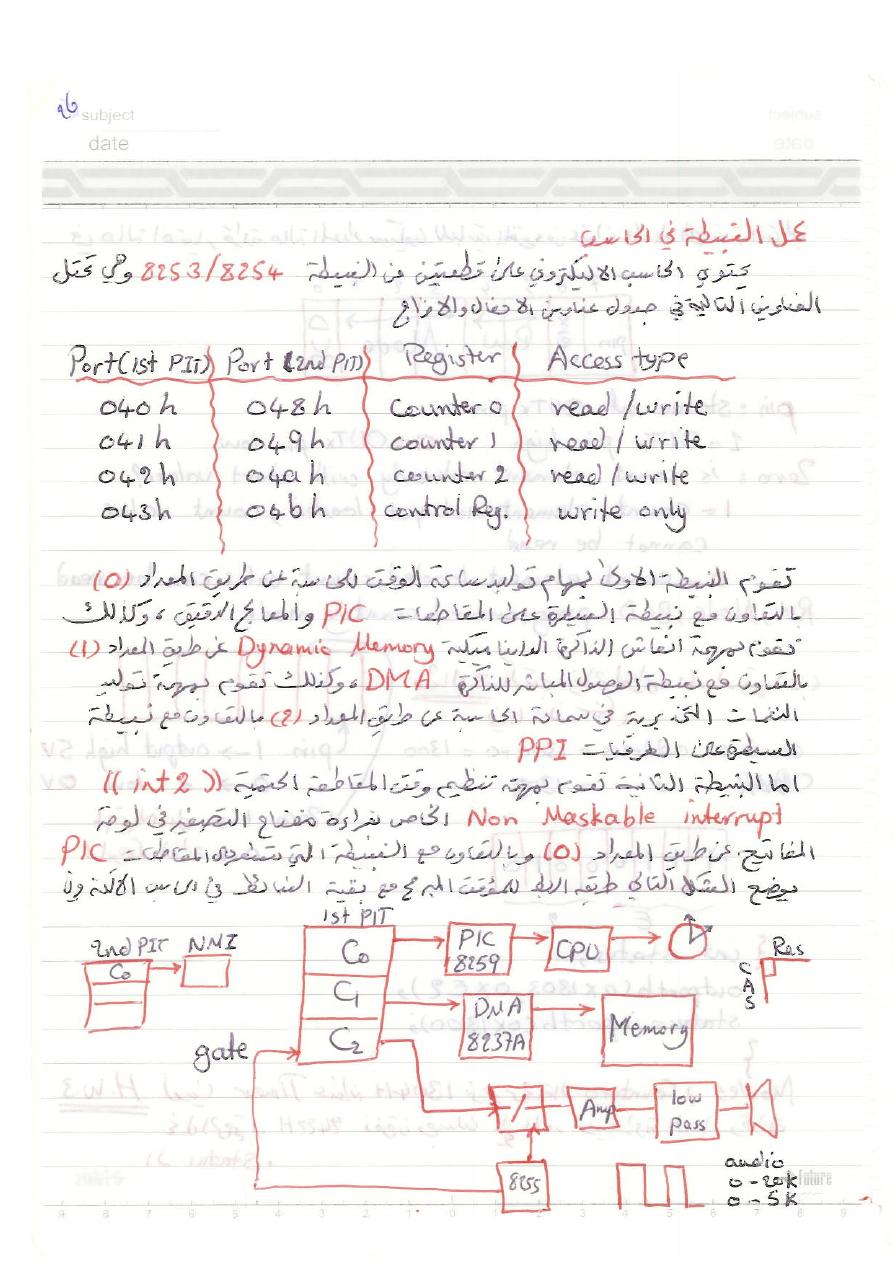 subject
date
عمل النبيطة في الحاسب
يحتوي الحاسب الاليكتروني على قطعتين من النبيطة 8253/8254 وهي تحتل
العناوين التالية في جدول عناوين الادخال والاخراج
Port(1st PIT) Port (2nd PIT) Register Access type
040h 048h counter 0 read/write
041h 049h counter 1 read/write
042h 04ah counter 2 read/write
043h 04bh control Reg. write only
تقوم النبيطة الاولى بمهام توليد ساعة الوقت للحاسبة عن طريق العداد (0)
بالتعاون مع نبيطة السيطرة على المقاطعات PIC والمعالج الدقيق، وكذلك
تقوم بمهمة انعاش الذاكرة الداينميكية Dynamic Memory عن طريق العداد (1)
بالتعاون مع نبيطة الوصول المباشر للذاكرة DMA، وكذلك تقوم بمهمة توليد
النغمات التحذيرية في سماعة الحاسبة عن طريق العداد (2) بالتعاون مع نبيطة
السيطرة على الطرفيات PPI
اما النبيطة الثانية تقوم بمهمة تنظيم وقت المقاطعة الحتمية ((int 2))
Non Maskable interrupt الخاص بقراءة مفتاح التصفير في لوحة
المفاتيح عن طريق العداد (0) وبالتعاون مع النبيطة المقاطعات PIC
يوضح الشكل التالي طريقة الربط للمؤقت المبرمج مع بقية النبائط في
1st PIT
2nd PIT NMI
C0
C0 PIC 8259 CPU
Res
CAS
C1 DMA 8237A Memory
C2
gate
Amp low pass
8255
audio
0 - 20K
0 - 5K